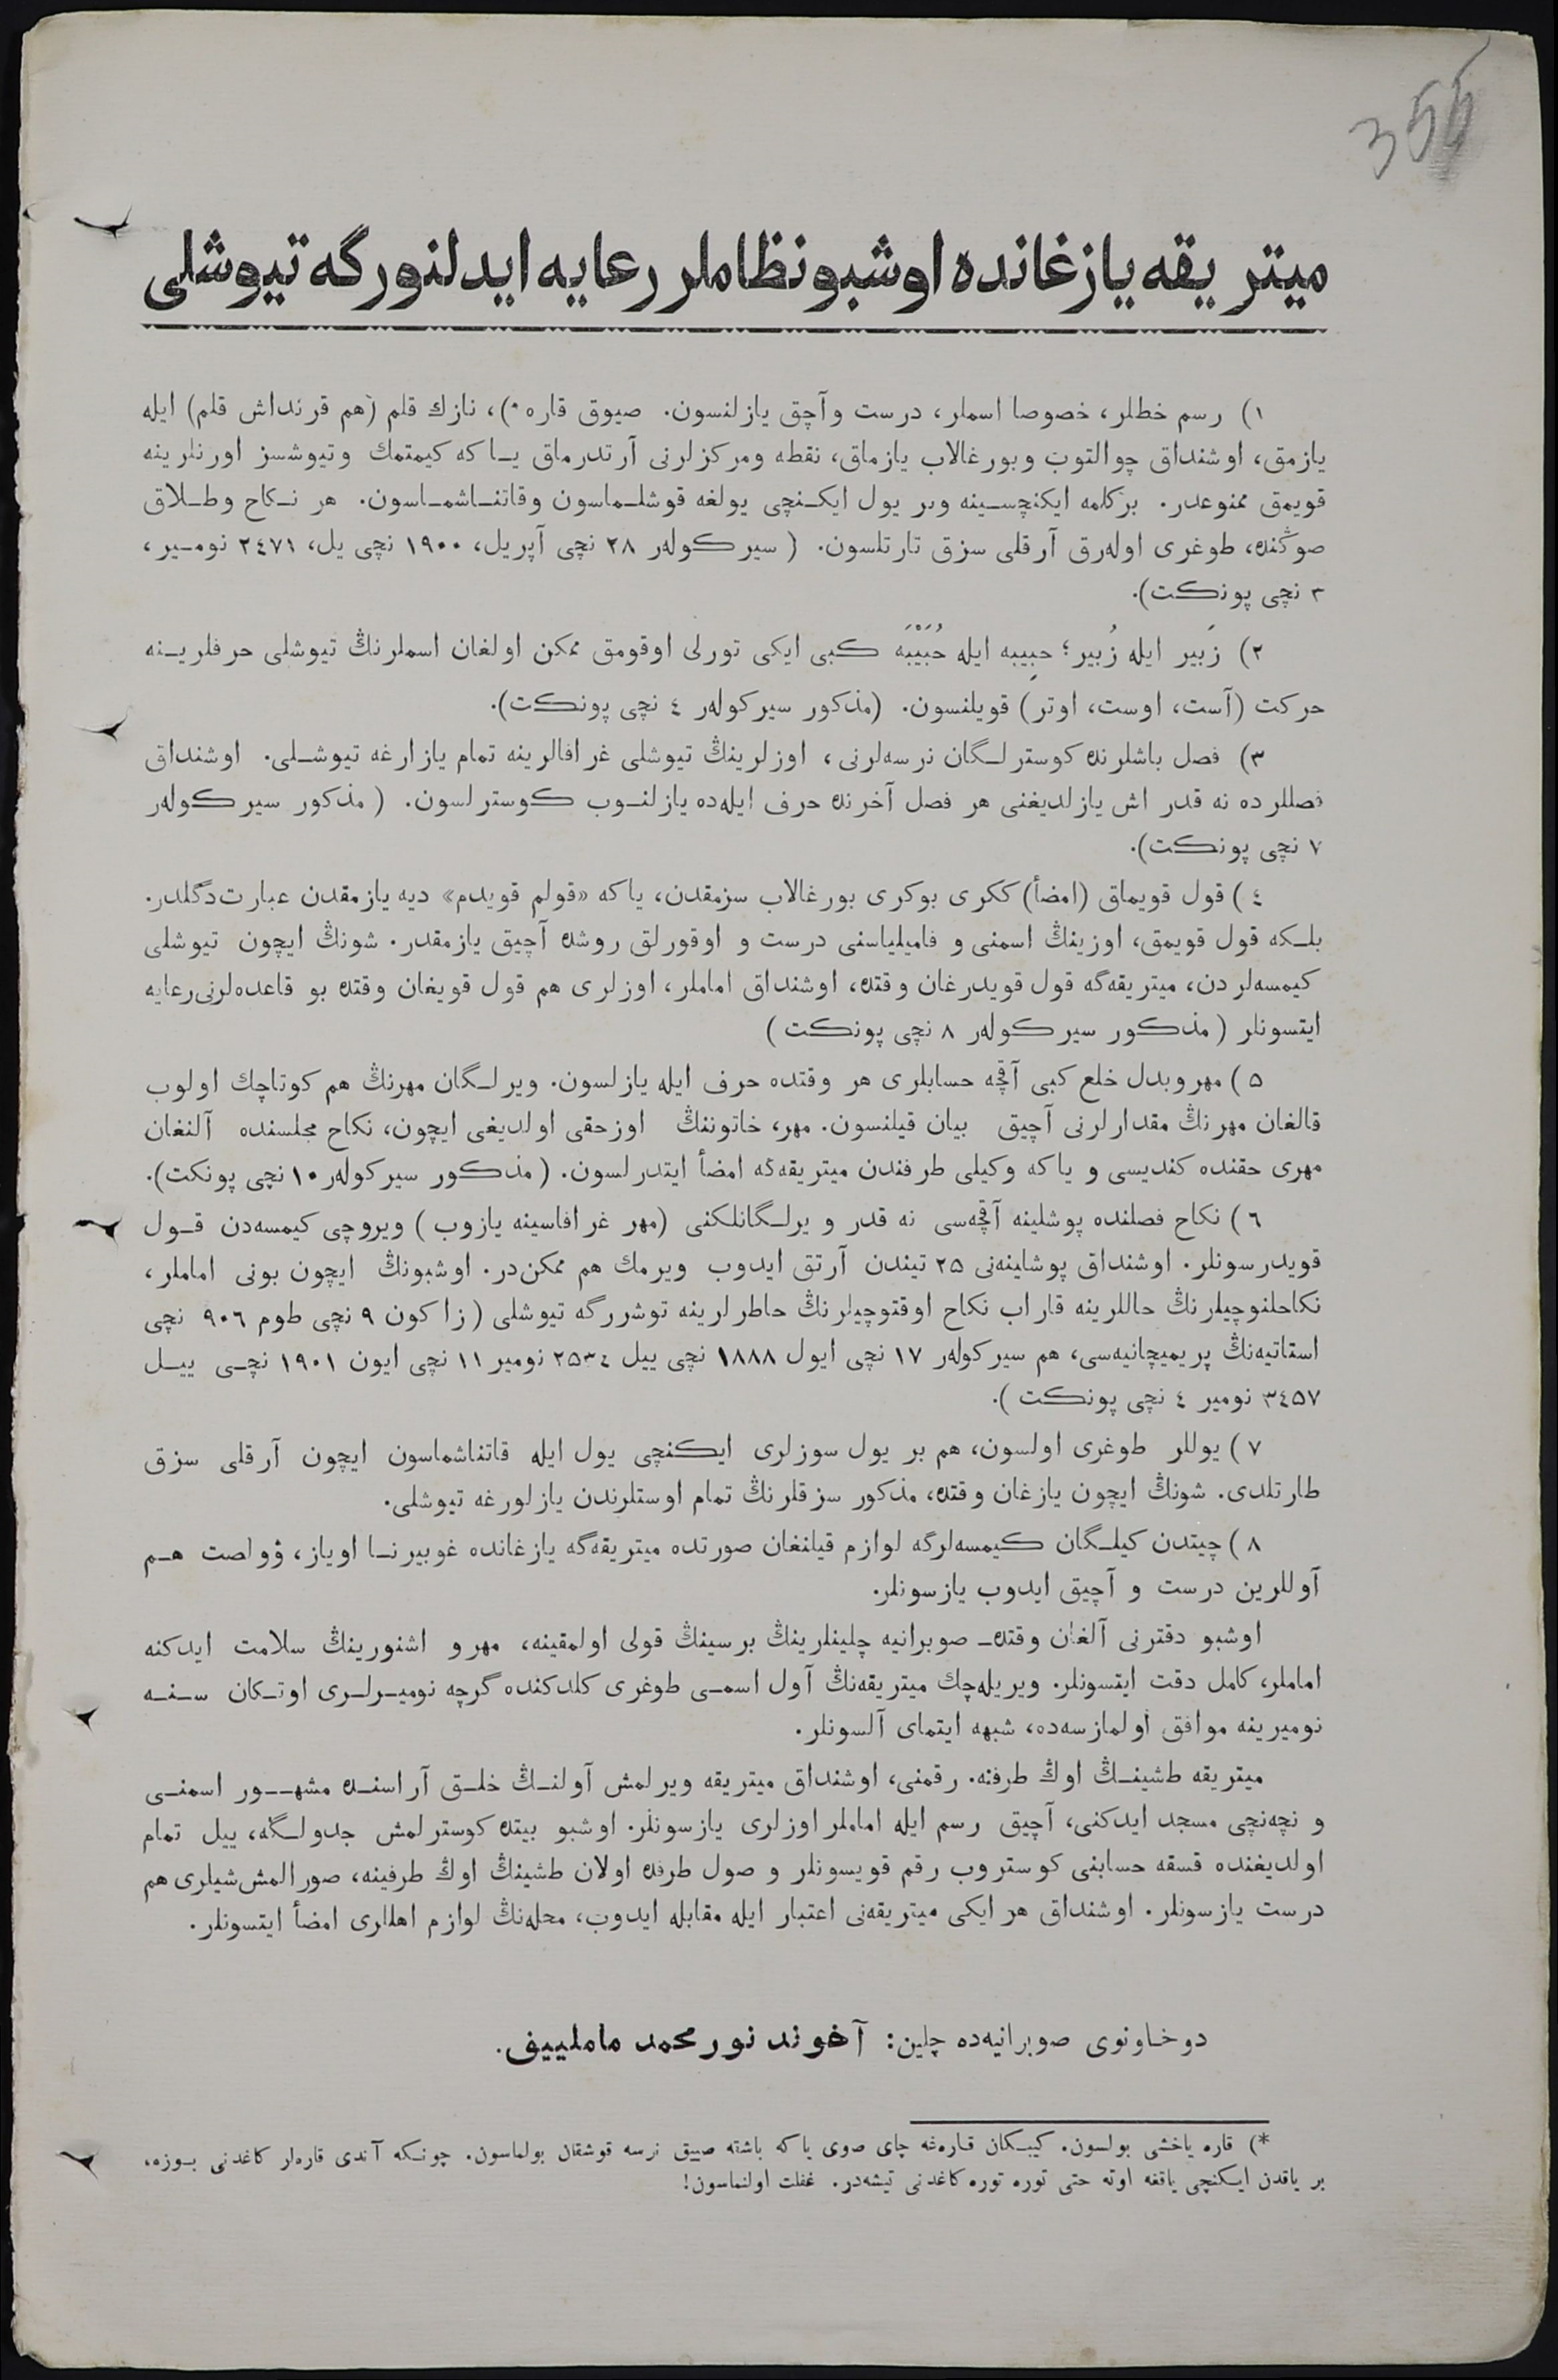 355
ميتريقه يازغانده اوشبو نظاملر رعايه ايدلنورگه تيوشلى
١) رسم خطلر، خصوصا اسملر، درست وآچق يازلنسون. صيوق قاره*)، نازك قلم (هم قرنداش قلم) ايله
يازمق، اوشنداق چوالتوب وبورغالاب يازماق، نقطه ومركزلرنى آرتدرماق يـا كه كيمتمك وتيوشسز اورنلرينه
قويمق ممنوعدر. بركلمه ايكنچسـينه وبر يول ايكـنچى يولغه قوشلـماسون وقاتنـاشمـاسون. هر نـكاح وطـلاق
صوڭنده، طوغرى اولەرق آرقلى سزق تارتلسون. (سيركولەر ٢٨ نچى آپريل، ١٩٠٠ نچى يل، ٢٤٧١ نومـير،
٣ نچى پونكت).
٢) زَبير ايله زُبير؛ حبِيبه ايله حُبَيْبَه كبى ايكى تورلى اوقومق ممكن اولغان اسملرنڭ تيوشلى حرفلريـنه
حركت (آست، اوست، اوتر) قويلنسون. (مذكور سيركولەر ٤ نچى پونكت).
٣) فصل باشلرنده كوسترلـگان نرسەلرنى، اوزلرينڭ تيوشلى غرافالرينه تمام يازارغه تيوشـلى. اوشنداق
فصللرده نه قدر اش يازلديغنى هر فصل آخرنده حرف ايلەده يازلنـوب كوسترلسون. (مذكور سيركولەر
٧ نچى پونكت).
٤) قول قويماق (امضأ) ككرى بوكرى بورغالاب سزمقدن، ياكه «قولم قويدم» ديه يازمقدن عبارت دگلدر.
بلـكه قول قويمق، اوزينڭ اسمنى و فاميلياسنى درست و اوقورلق روشده آچيق يازمقدر. شونڭ ايچون تيوشلى
كيمسەلردن، ميتريقەگه قول قويدرغان وقتده، اوشنداق اماملر، اوزلرى هم قول قويغان وقتده بو قاعدەلرنى رعايه
ايتسونلر (مذكور سيركولەر ٨ نچى پونكت)
٥) مهر وبدل خلع كبى آقچه حسابلرى هر وقتده حرف ايله يازلسون. ويرلـگان مهرنڭ هم كوتاچك اولوب
قالغان مهرنڭ مقدارلرنى آچيق بيان قيلنسون. مهر، خاتوننڭ اوزحقى اولديغى ايچون، نكاح مجلسنده آلنغان
مهرى حقنده كنديسى و ياكه وكيلى طرفندن ميتريقەگه امضأ ايتدرلسون. (مذكور سيركولەر ١٠ نچى پونكت).
٦) نكاح فصلنده پوشلينه آقچەسى نه قدر ويرلـگانلكنى (مهر غرافاسينه يازوب) ويروچى كيمسەدن قـول
قويدرسونلر. اوشنداق پوشلينەنى ٢٥ تيندن آرتق ايدوب ويرمك هم ممكن‌در. اوشبونڭ ايچون بونى اماملر،
نكاحلنوچيلرنڭ حاللرينه قاراب نكاح اوقتوچيلرنڭ خاطرلرينه توشررگه تيوشلى (زاكون ٩ نچى طوم ٩٠٦ نچى
استاتيەنڭ پريميچانيەسى، هم سيركولەر ١٧ نچى ايول ١٨٨٨ نچى ييل ٢٥٣٤ نومير ١١ نچى ايون ١٩٠١ نچـى ييـل
٣٤٥٧ نومير ٤ نچى پونكت).
٧) يوللر طوغرى اولسون، هم بر يول سوزلرى ايكنچى يول ايله قاتناشماسون ايچون آرقلى سزق
طارتلدى. شونڭ ايچون يازغان وقتده، مذكور سزقلرنڭ تمام اوستلرندن يازلورغه تيوشلى.
٨) چيتدن كيلـگان كيمسەلرگه لوازم قيلنغان صورتده ميتريقەگه يازغانده غوبيرنـا اوياز، ۋولصت هـم
آوللرين درست و آچيق ايدوب يازسونلر.
اوشبو دفترنى آلغان وقتده ـ صوبرانيه چلينلرينڭ برسينڭ قولى اولمقينه، مهر و اشنورينڭ سلامت ايدكنه
اماملر، كامل دقت ايتسونلر. ويريلەچك ميتريقەنڭ آول اسمـى طوغرى كلدكنده گرچه نوميـرلـرى اوتـكان سـنـه
نوميرينه موافق اولمازسەده، شبهه ايتماى آلسونلر.
ميتريقه طشينـڭ اوڭ طرفنه. رقمنى، اوشنداق ميتريقه ويرلمش آولنـڭ خلـق آراسنـده مشهـور اسمنـى
و نچەنچى مسجد ايدكنى، آچيق رسم ايله اماملر اوزلرى يازسونلر. اوشبو بيتده كوسترلمش جدولـگه، ييل تمام
اولديغنده قسقه حسابنى كوستروب رقم قويسونلر و صول طرفده اولان طشينڭ اوڭ طرفينه، صورالمش شيلرى هم
درست يازسونلر. اوشنداق هر ايكى ميتريقەنى اعتبار ايله مقابله ايدوب، محلەنڭ لوازم اهللارى امضأ ايتسونلر.
دوخاونوى صوبرانيەده چلين: آخوند نورمحمد ماملييف.
*) قاره ياخشى بولسون. كيبـكان قارەغه چاى صوى ياكه باشته صييق نرسه قوشقان بولماسون. چونـكه آندى قارەلر كاغدنى بـوزه،
بر ياقدن ايـكنچى ياقغه اوته حتى توره توره كاغدنى تيشەدر. غفلت اولنماسون!